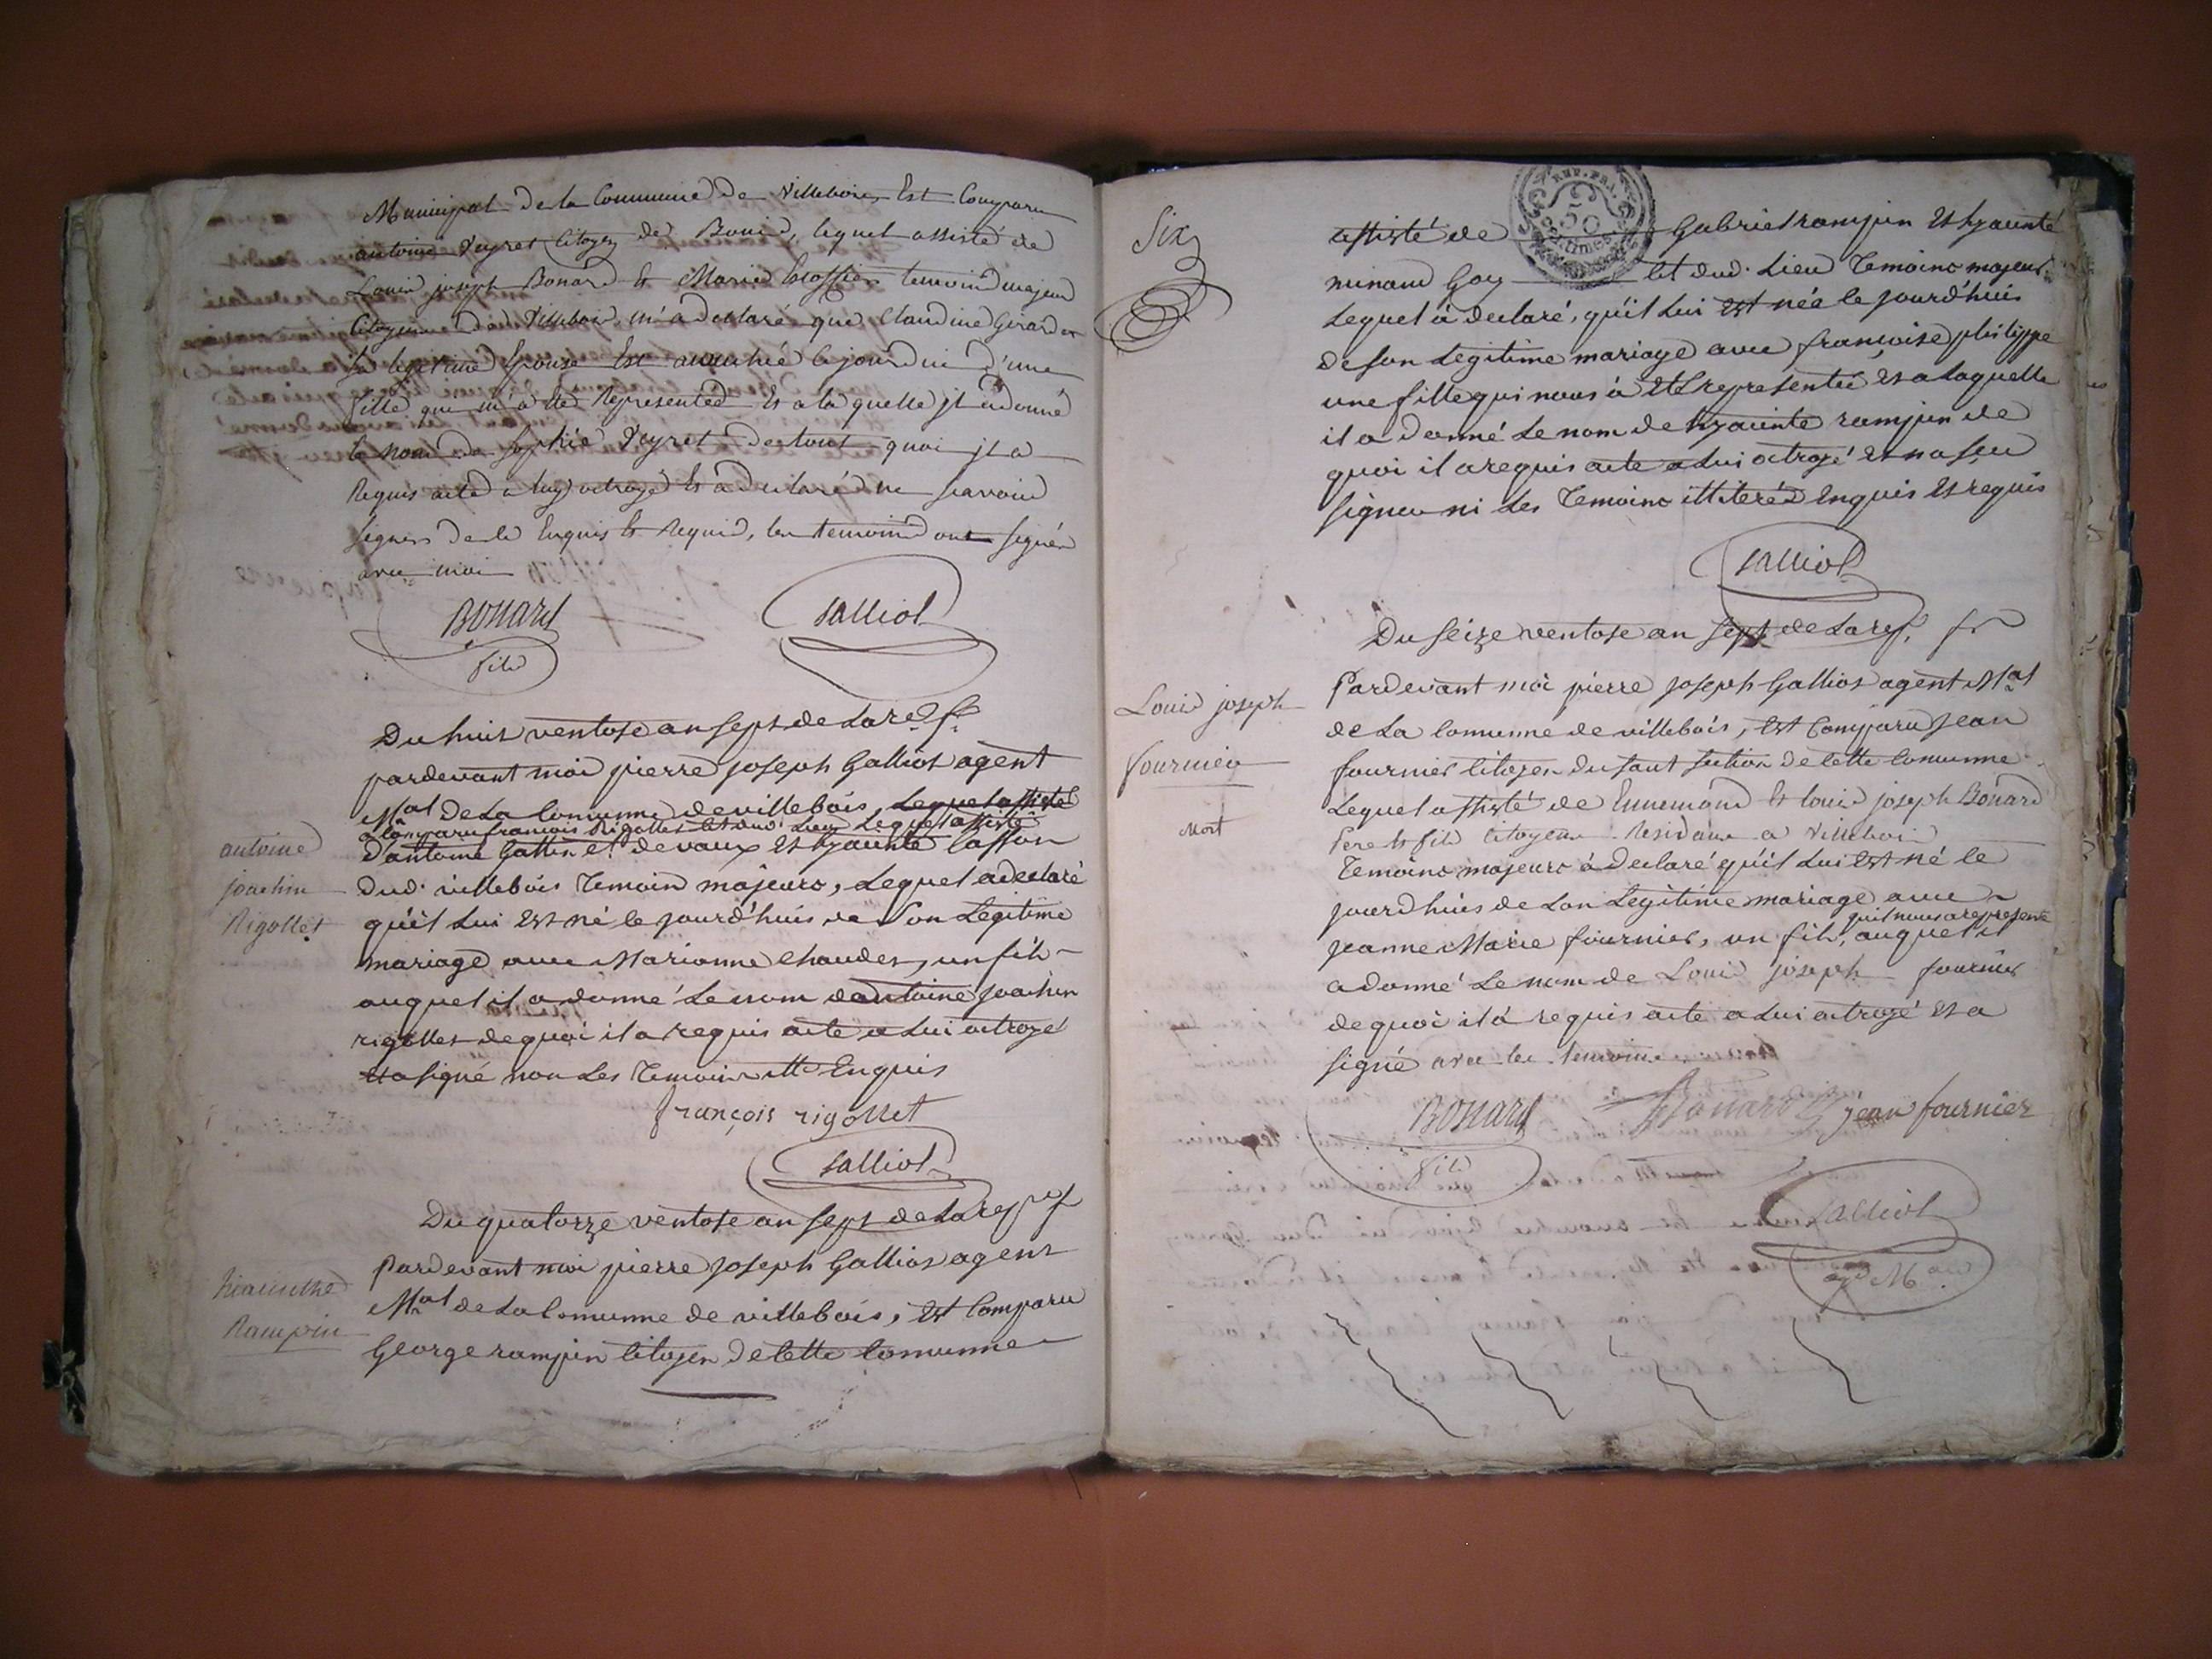 Municipal de la Commune de Villebois, Est Comparu
antoine Veyret Citoyen de Bouis, lequel assisté de
Louis joseph Bonard Et Marie temoins majeurs
Citoyens de Villebois, m'a declaré que Claudine Girardon
sa legitime Epouse Est accouchée ce jourdui d'une
fille que m'a eté Representée Et a la quelle jl a donné
le nom de Sophie Veyret de tout quoi jl a
Requis acte a luy octroyé Et a declaré ne scavoir
signer de ce Enquis Et Requis, les temoins ont signés
avec moi
BONARD
fils
Galliot
Du huit ventose an sept de la rep. fr.
pardevant moi pierre joseph Galliot agent
Mal de La Comunne de villebois, Lequel assisté
a Comparu francois Rigollet Cit dud. Lieu Lequel assisté
d'antoine Gallin et de vaux Et hyacinte Casson
dud. villebois Temoins majeurs, Lequel a declaré
qu'il Lui Est né le jourd'huis de son Legitime
mariage avec Marianne Chaudet, un fils
auquel il a donné Le nom d'antoine joachin
rigollet de quoi il a requis acte a Lui octroyé
Et a signé non Les Temoins ill. Enquis
françois rigollet
Galliot
antoine
joachin
Rigollet
Du quatorze ventose an sept de La rep. f
Pardevant moi pierre joseph Galliot agent
Mal de La Comunne de villebois, Est Comparu
George rampin Citoyen de Cette Comunne
hiacinthe
Rampin
Six
REP. FRA.
50
Centimes
assisté de Gabriel rampin Et hyacinte
minand Goy Cit dud. Lieu Temoins majeurs
Lequel à declaré, qu'il Lui Est née le jourd'huis
de son Legitime mariage avec françoise philippe
une fille qui nous à Eté representée Et a Laquelle
il a donné Le nom de hyacinte rampin de
quoi il a requis acte a Lui octroyé Et na sçeu
signer ni Les Temoins illiterés Enquis Et requis
Galliot
Du Seize ventose an sept de La rep. fr
Pardevant moi pierre joseph Galliot agent Mal
de La Comunne de villebois, Est Comparu jean
fournier Citoyen du saut section de Cette Comunne
Lequel assisté de Ennemond Et louis joseph Bonard
Pere Et fils Citoyens Residans a Villebois
Temoins majeurs à declaré qu'il Lui Est né le
jourdhuis de son Legitime mariage avec
qu'il nous a representé
jeanne Marie fournier, un fils, auquel il
a donné Le nom de Louis joseph fournier
de quoi il à requis acte a Lui octroyé Et a
signé avec les temoins
BONARD
fils
Bonard
jean fournier
Galliot
agt Mal
Louis joseph
fournier
Mort